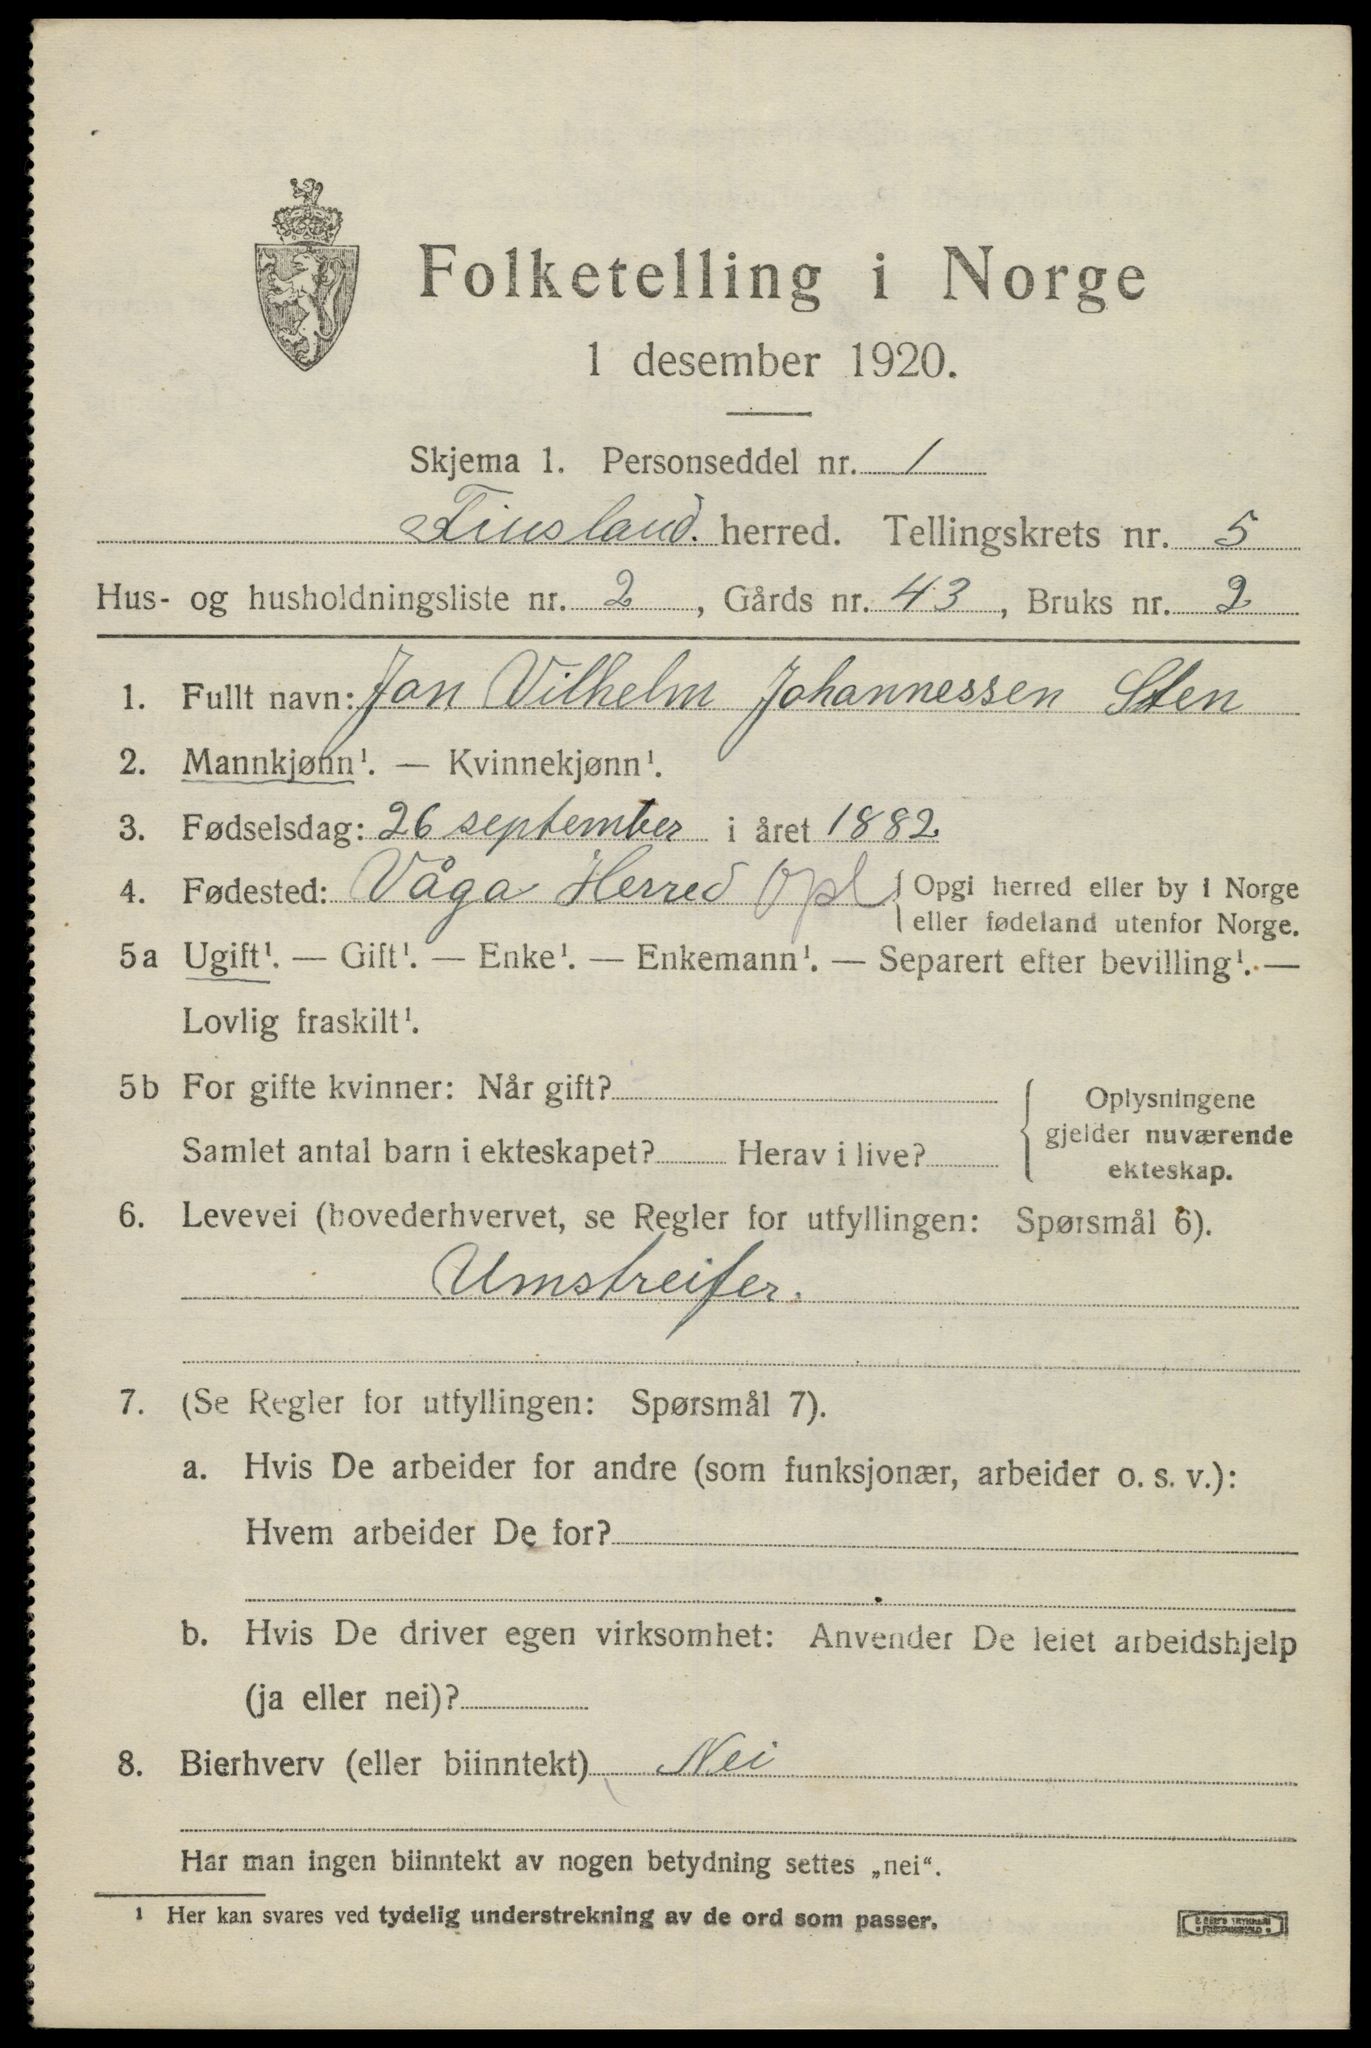 Folketelling i Norge
1 desember 1920.
Skjema 1. Personseddel nr. 1
Finsland. herred. Tellingskrets nr. 5
Hus- og husholdningsliste nr. 2, Gårds nr. 43, Bruks nr. 2
1. Fullt navn: Jon Vilhelm Johannessen Sten
2. Mannkjønn¹. — Kvinnekjønn¹.
3. Fødselsdag: 26 september i året 1882
4. Fødested: Våga Herred Opl { Opgi herred eller by i Norge
eller fødeland utenfor Norge.
5a Ugift¹. — Gift¹. — Enke¹. — Enkemann¹. — Separert efter bevilling¹. —
Lovlig fraskilt¹.
5b For gifte kvinner: Når gift?
Samlet antal barn i ekteskapet? Herav i live?
{ Oplysningene
gjelder nuværende
ekteskap.
6. Levevei (hovederhvervet, se Regler for utfyllingen: Spørsmål 6).
Umstreifer.
7. (Se Regler for utfyllingen: Spørsmål 7).
a. Hvis De arbeider for andre (som funksjonær, arbeider o. s. v.):
Hvem arbeider De for?
b. Hvis De driver egen virksomhet: Anvender De leiet arbeidshjelp
(ja eller nei)?
8. Bierhverv (eller biinntekt) Nei
Har man ingen biinntekt av nogen betydning settes „nei“.
¹ Her kan svares ved tydelig understrekning av de ord som passer.